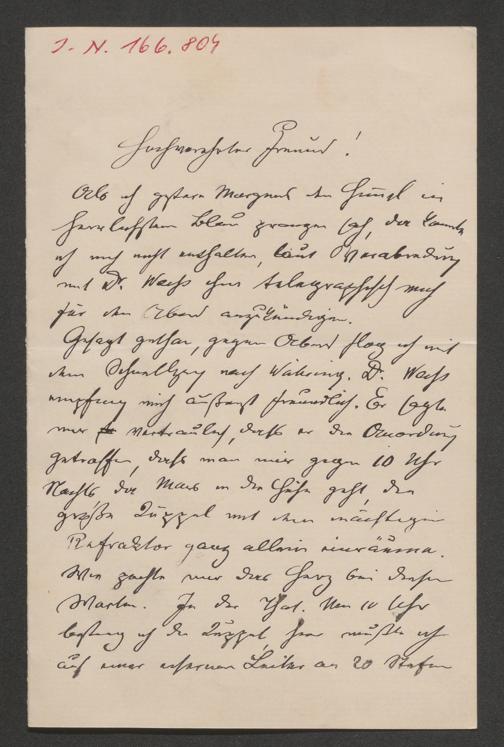 J. N. 166.804
Hochverehrter Freund!
Als ich gestern Morgens den Himmel im
herrlichsten Blau prangen sah, da konnte
ich mich nicht enthalten, laut Verabredung
mit Dr. Weiss ihm telegraphisch mich
für den Abend anzukündigen.
Gesagt gethan, gegen Abend flog ich mit
dem Schnellzug nach Währing. Dr. Weiss
empfing mich äußerst freundlich. Er sagte
mir vertraulich, dass er die Anordnung
getroffen, dass man mir gegen 10 Uhr
Nachts da Mars in die Höhe geht, die
größte Kuppel mit dem mächtigen
Refraktor ganz allein einräume.
Wie pochte mir das Herz bei diesen
Worten. In der That. Um 10 Uhr
bestieg ich die Kuppel hier mußte ich
auf einer eisernen Leiter an 20 Stufen